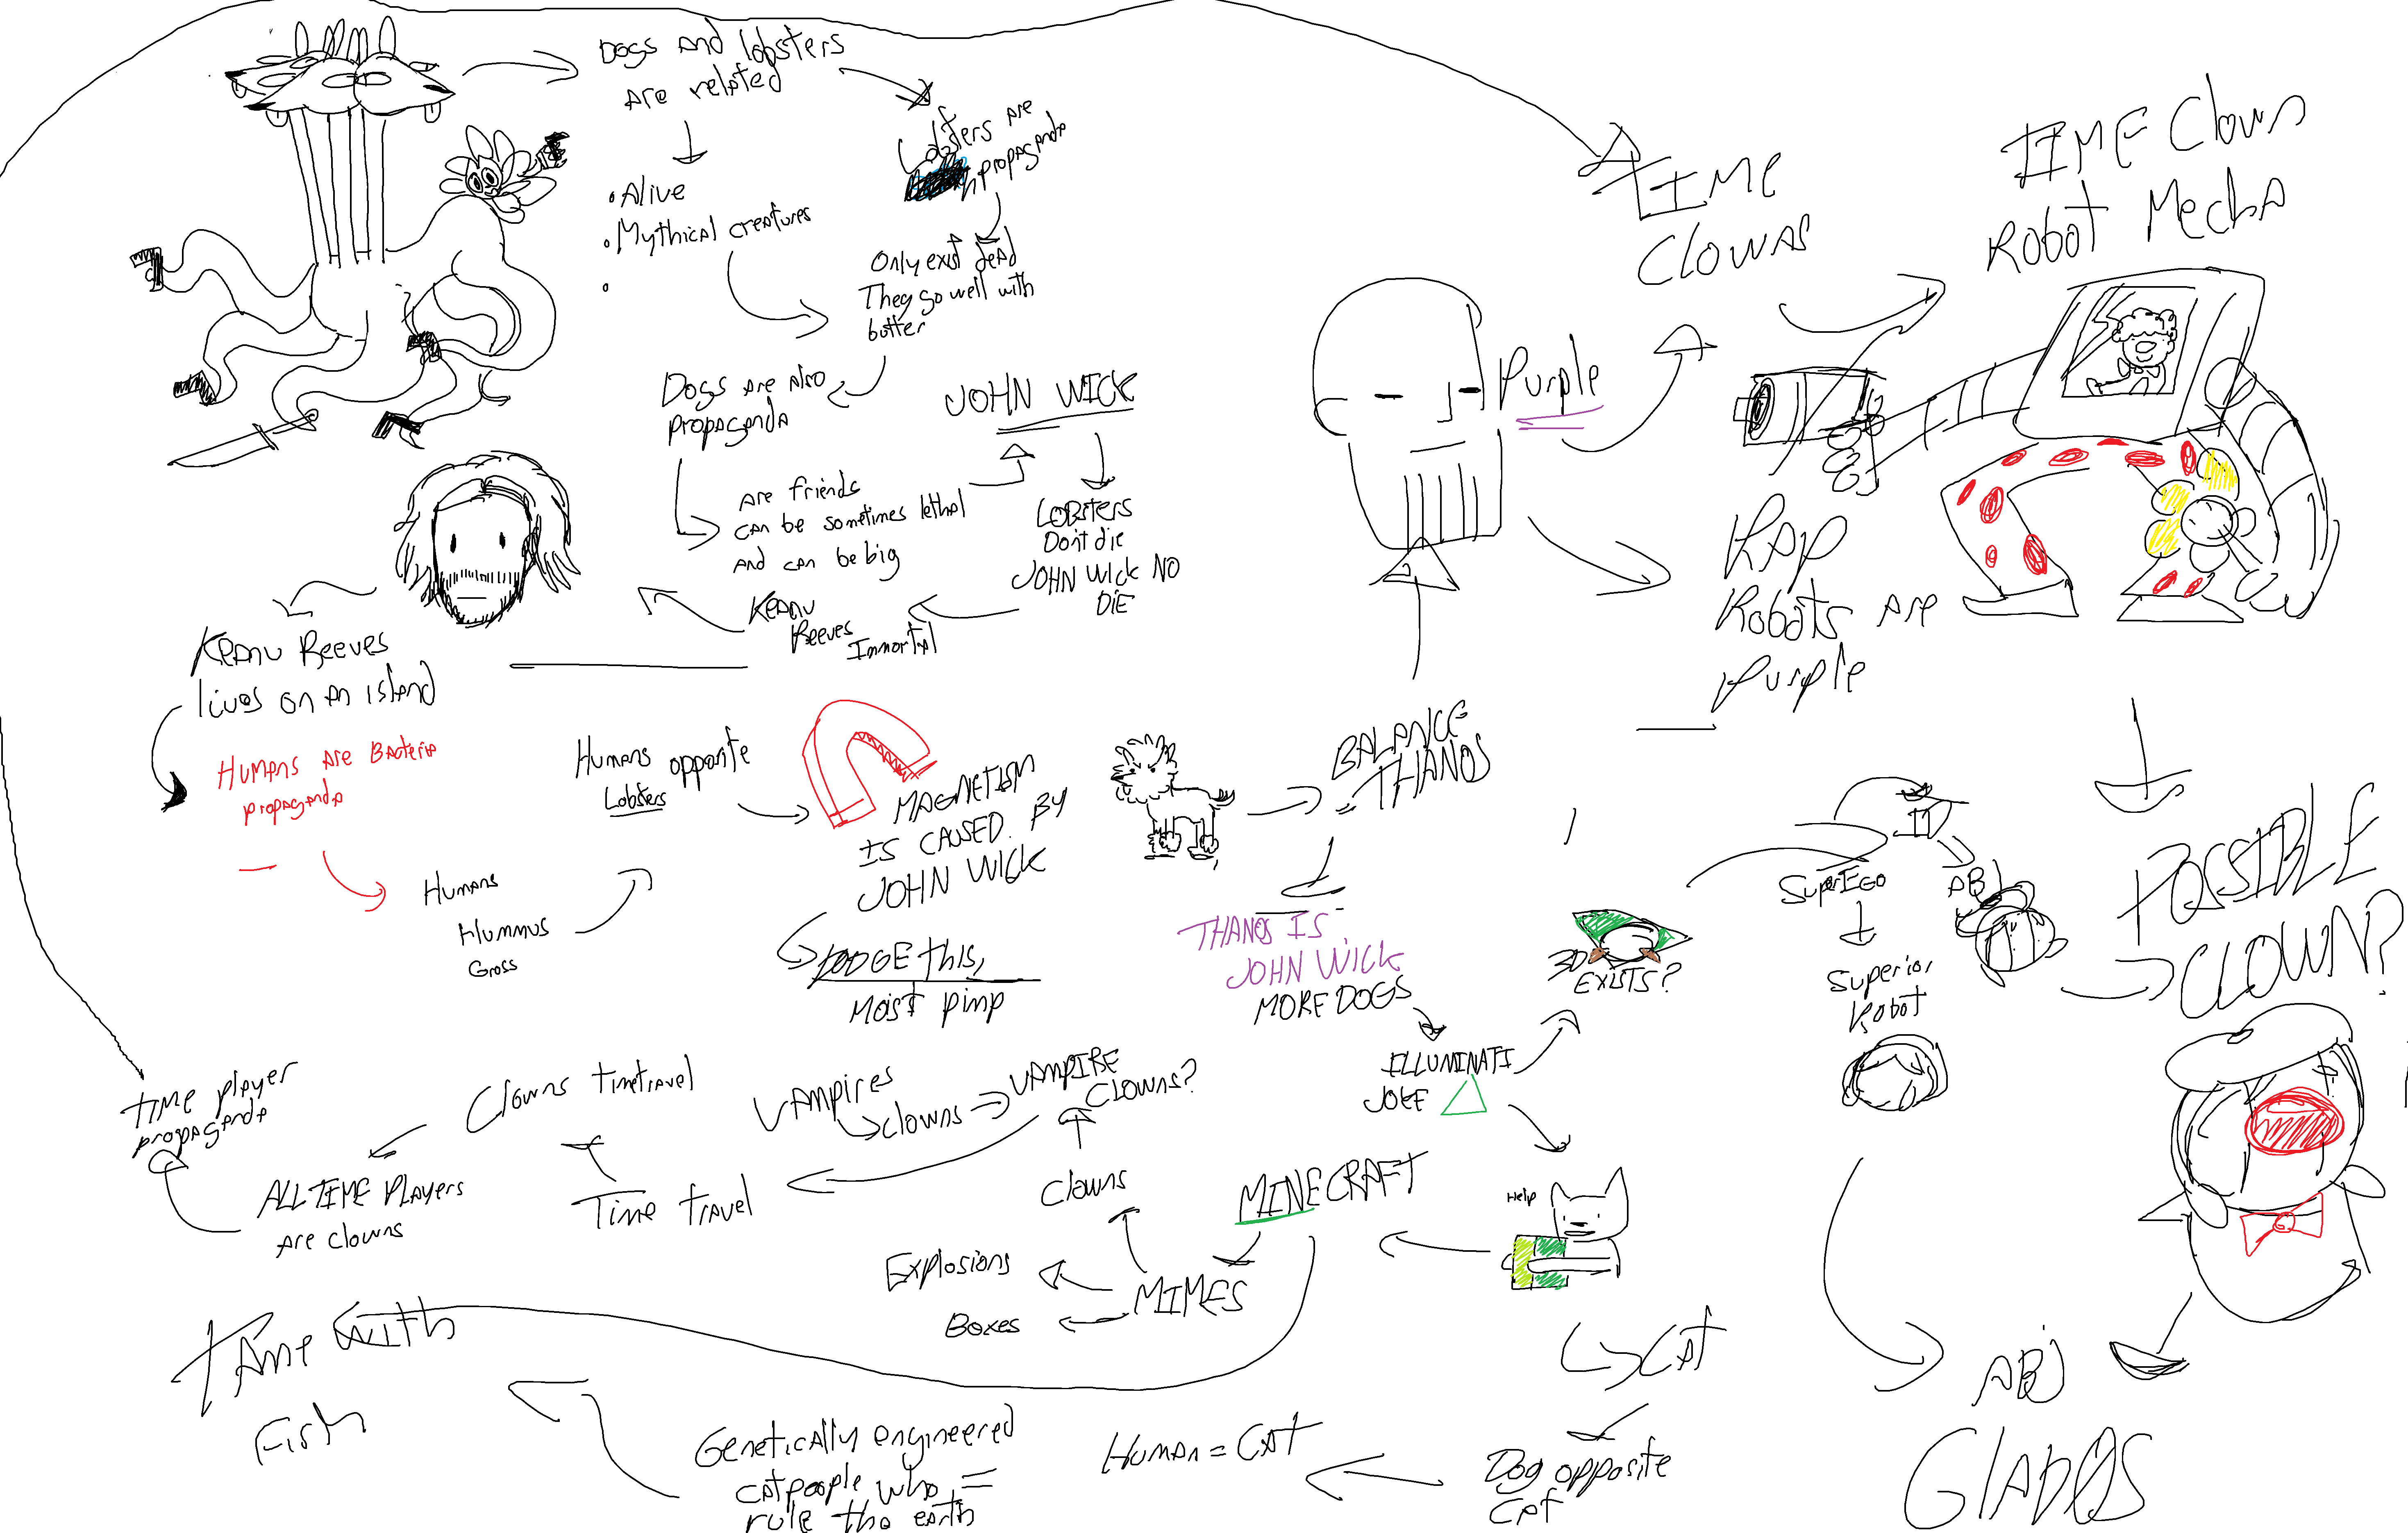 Dogs and lobsters
are related
• Alive
• Mythical creatures
•
Lobsters are
propaganda
Only exist dead
They go well with
butter
Dogs are also
propaganda
are friends
can be sometimes lethal
and can be big
JOHN WICK
LOBSTERS
Don't die
JOHN WICK NO
DIE
KEANU
REEVES
Immortal
Keanu Reeves
lives on an island
Humans are Bacteria
propaganda
Humans
Hummus
Gross
Humans opposite
Lobsters
MAGNETISM
IS CAUSED BY
JOHN WICK
DODGE this,
Moist pimp
BALANCE
= THANOS
THANOS IS
JOHN WICK
MORE DOGS
ILLUMINATI
JOKE
3D
EXISTS?
Purple
TIME
Clowns
TIME Clown
Robot Mecha
RAP
Robots are
purple
SuperEGO
Superior
Robot
ABJ
POSSIBLE
CLOWN?
ABJ
GlaDOS
Help
CAT
Dog opposite
cat
Human = CAT
Genetically engineered
cat people who =
rule the earth
Time with
Fish
MINECRAFT
MIMES
Explosions
Boxes
Clowns
VAMPIRE
Clowns?
Vampires
clowns
Time travel
Clowns timetravel
ALL TIME PLAYERS
are clowns
TIME player
propaganda